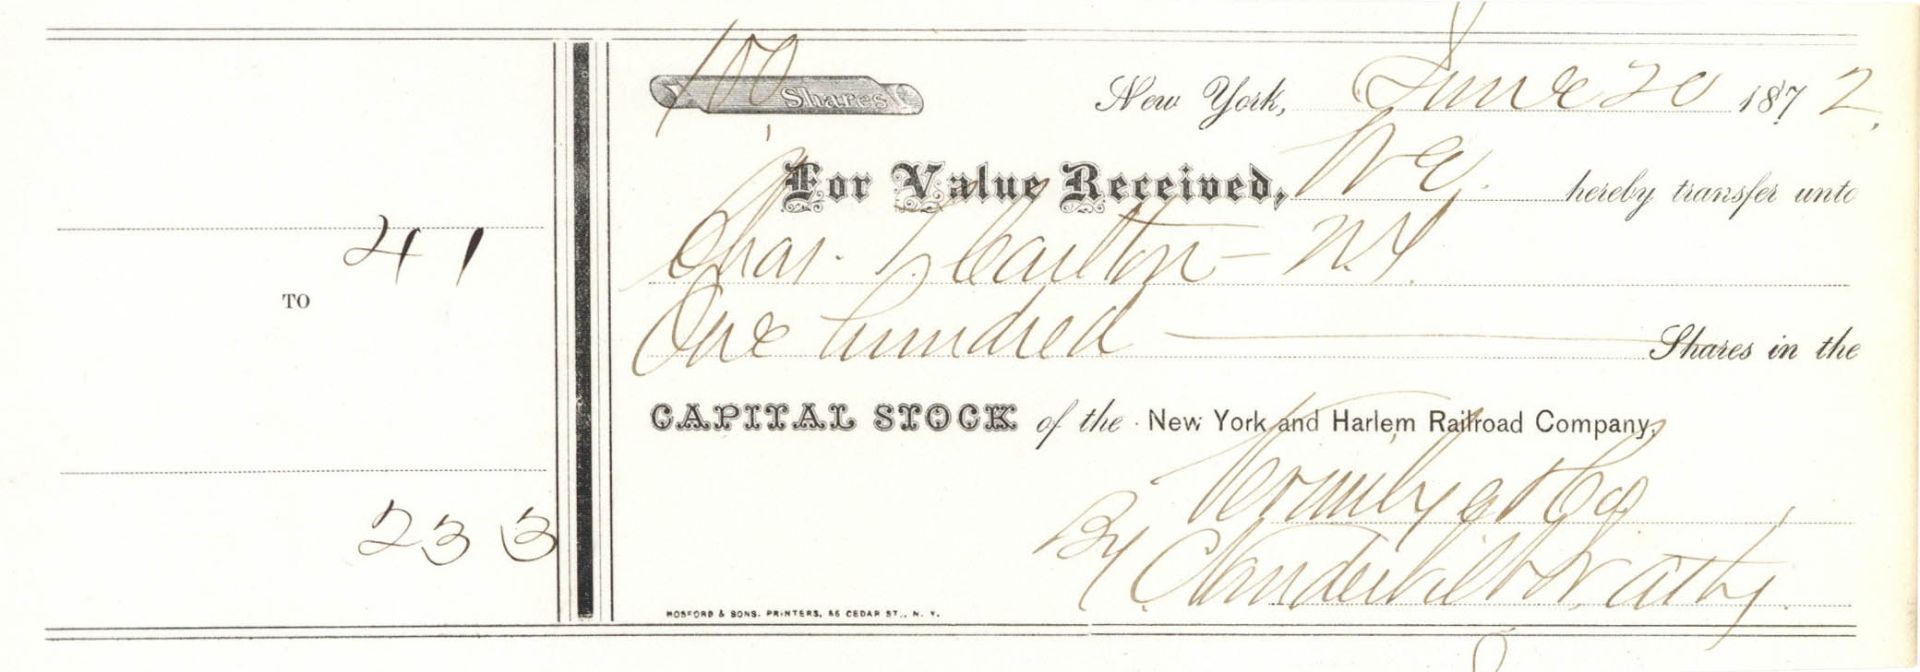 41
TO
233
100 Shares
New York, June 20 1872.
For Value Received, We hereby transfer unto
Chas. Carlton - N.Y.
One hundred Shares in the
CAPITAL STOCK of the New York and Harlem Railroad Company.
Vermilye & Co
By C Vanderbilt Jr. atty.
HOSFORD & SONS. PRINTERS, 56 CEDAR ST., N. Y.